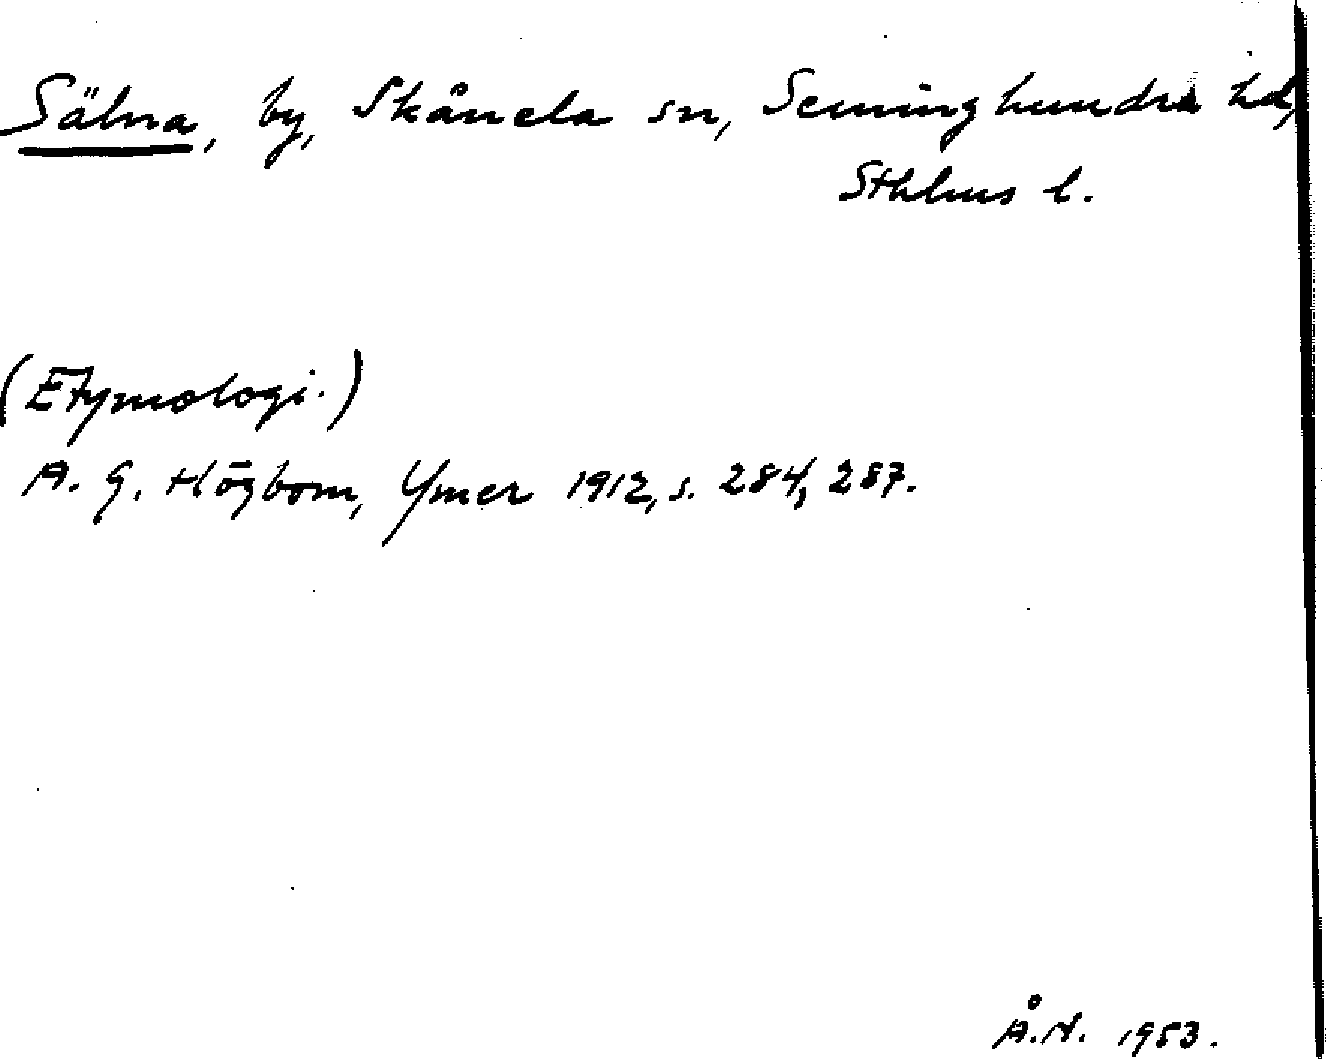 Sälna, by, Skånela sn, Seminghundra hd,
Sthlms l.
(Etymologi.)
A. G. Högbom, Ymer 1912, s. 284, 287.
Å.N. 1953.